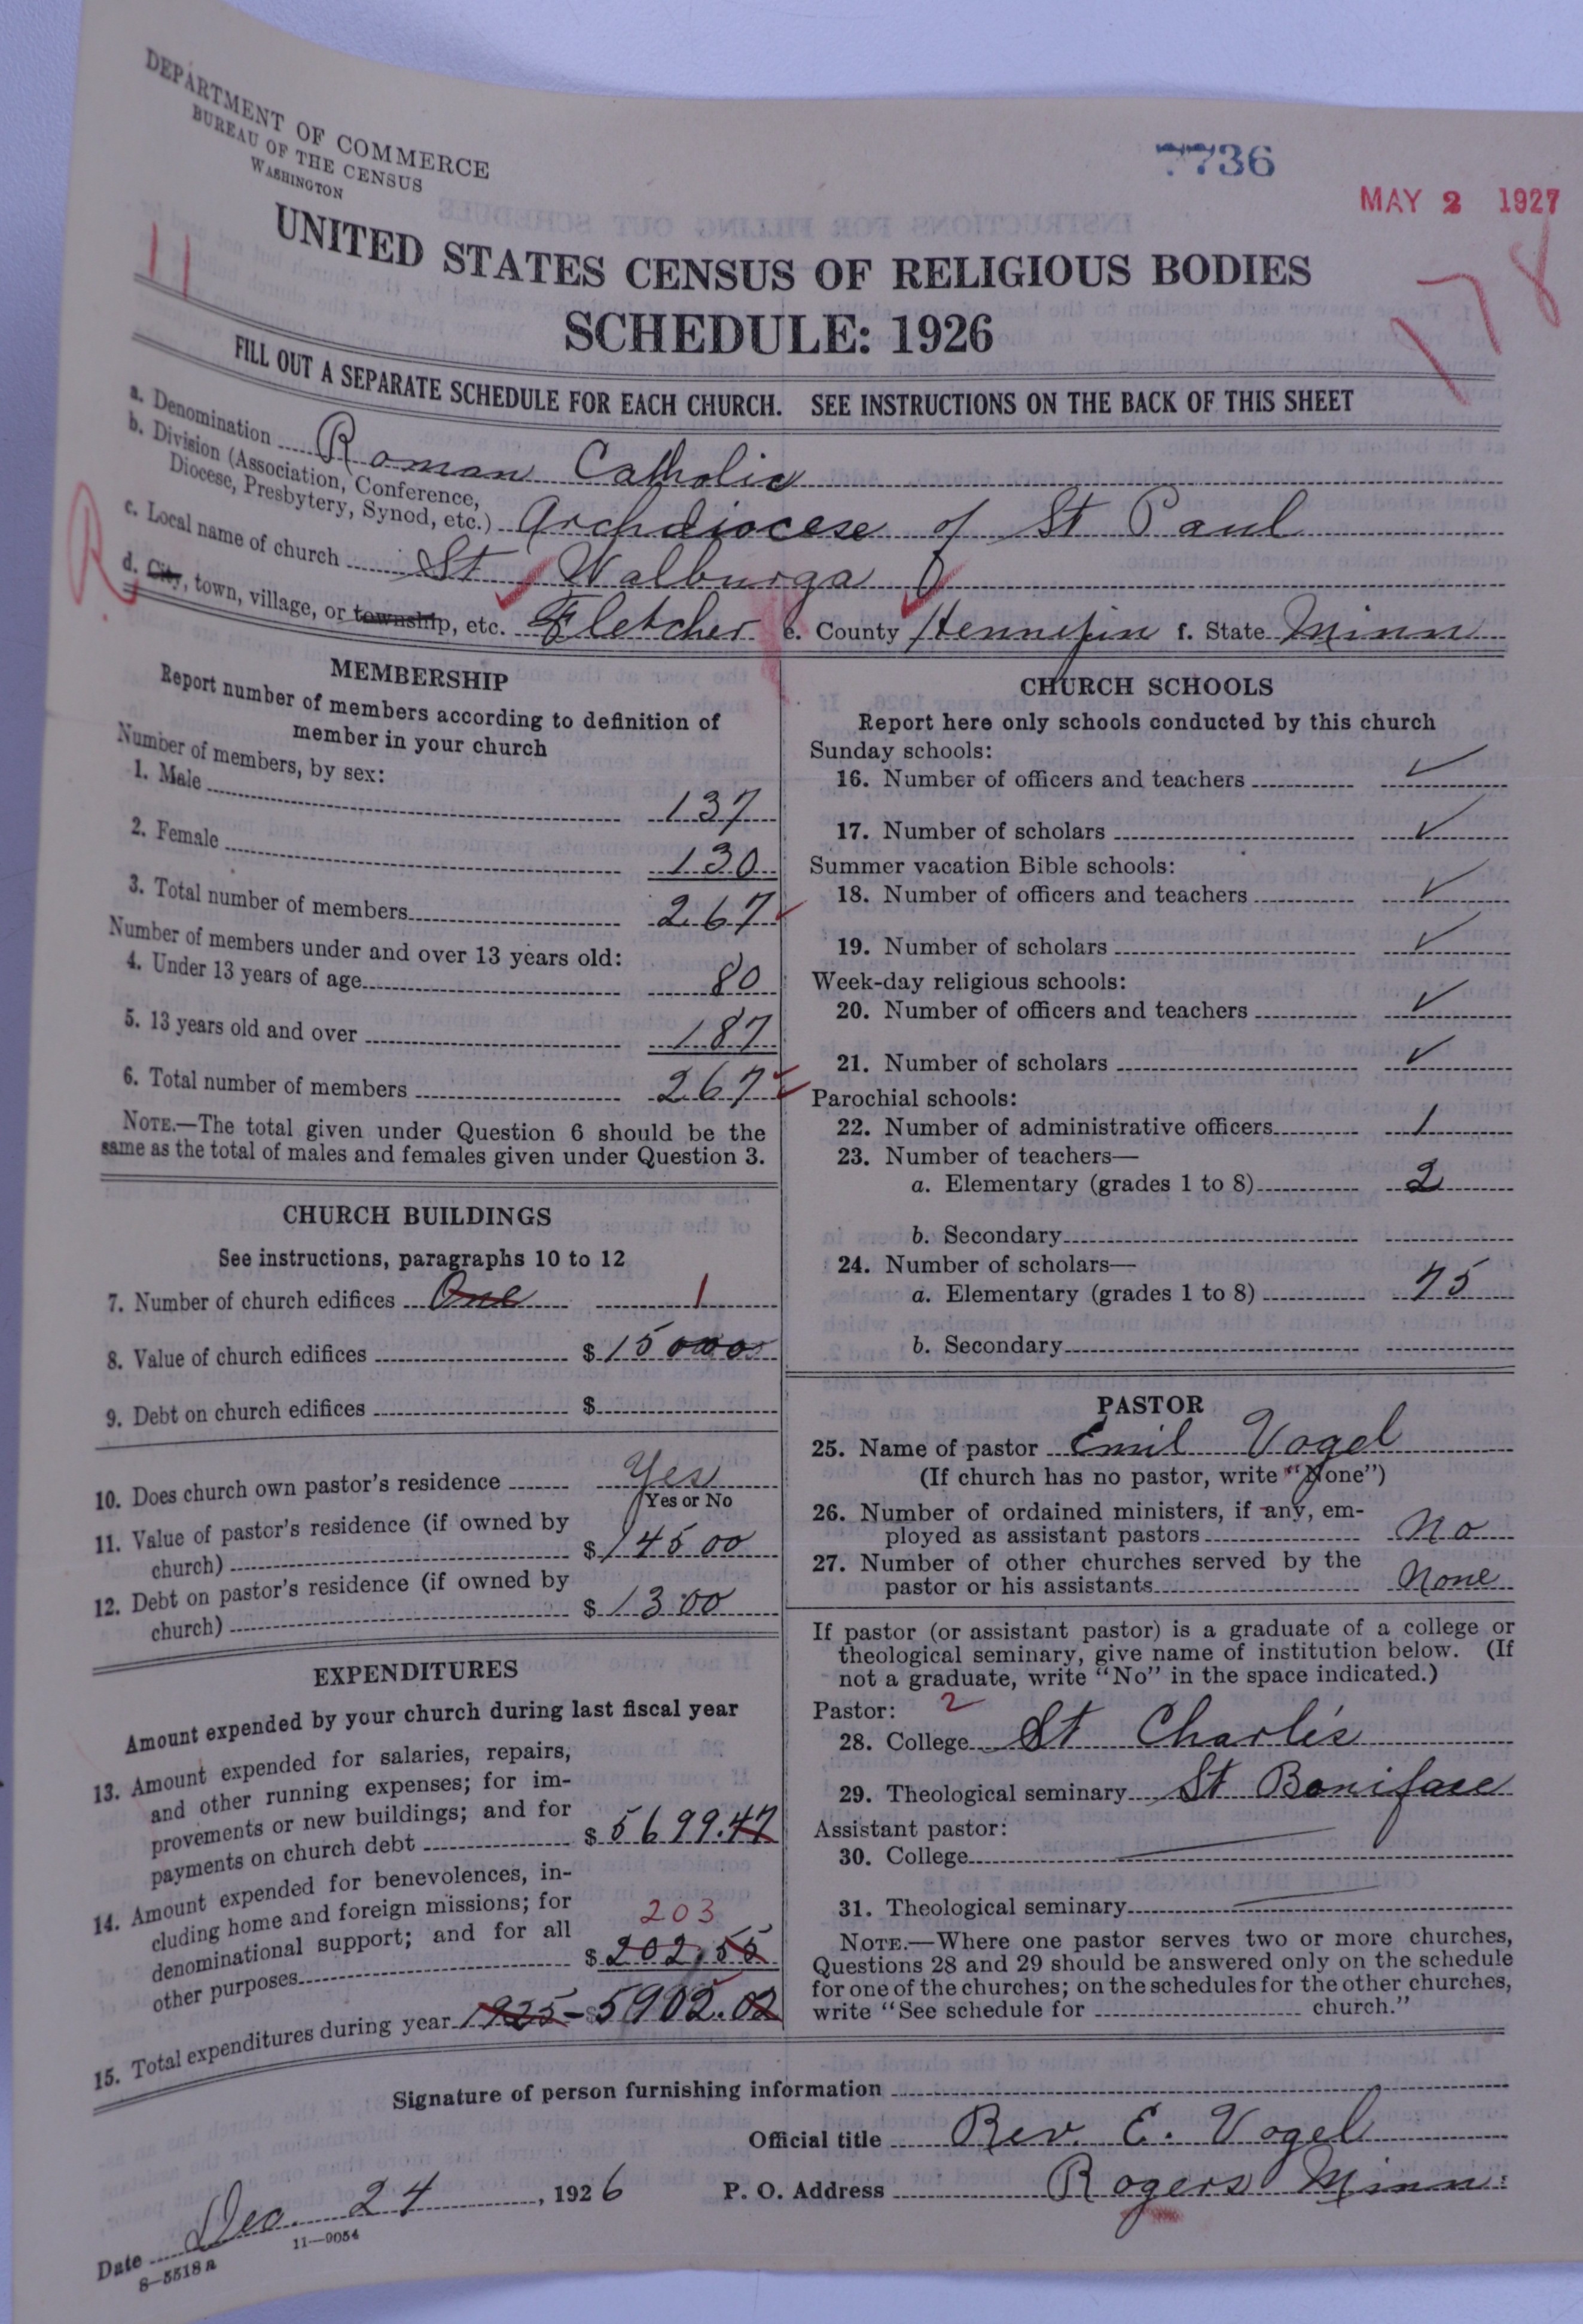 DEPARTMENT OF COMMERCE
BUREAU OF THE CENSUS
WASHINGTON
7736
MAY 2 1927
11
178
UNITED STATES CENSUS OF RELIGIOUS BODIES
SCHEDULE: 1926
FILL OUT A SEPARATE SCHEDULE FOR EACH CHURCH. SEE INSTRUCTIONS ON THE BACK OF THIS SHEET
a. Denomination Roman Catholic
b. Division (Association, Conference,
Diocese, Presbytery, Synod, etc.) Archdiocese of St Paul
c. Local name of church St Walburga
R
d. City, town, village, or township, etc. Fletcher e. County Hennepin f. State Minn
MEMBERSHIP
Report number of members according to definition of
member in your church
Number of members, by sex:
1. Male 137
2. Female 130
3. Total number of members 267
Number of members under and over 13 years old:
4. Under 13 years of age 80
5. 13 years old and over 187
6. Total number of members 267
NOTE.—The total given under Question 6 should be the
same as the total of males and females given under Question 3.
CHURCH BUILDINGS
See instructions, paragraphs 10 to 12
7. Number of church edifices One 1
8. Value of church edifices $ 15000
9. Debt on church edifices $
10. Does church own pastor's residence Yes
Yes or No
11. Value of pastor's residence (if owned by
church) $ 14500
12. Debt on pastor's residence (if owned by
church) $ 1300
EXPENDITURES
Amount expended by your church during last fiscal year
13. Amount expended for salaries, repairs,
and other running expenses; for im-
provements or new buildings; and for
payments on church debt $ 5699.47
14. Amount expended for benevolences, in-
cluding home and foreign missions; for
denominational support; and for all
203
other purposes $ 202,55
15. Total expenditures during year 1925 - $ 5902.02
CHURCH SCHOOLS
Report here only schools conducted by this church
Sunday schools:
16. Number of officers and teachers ✓
17. Number of scholars ✓
Summer vacation Bible schools:
18. Number of officers and teachers ✓
19. Number of scholars ✓
Week-day religious schools:
20. Number of officers and teachers ✓
21. Number of scholars ✓
Parochial schools:
22. Number of administrative officers 1
23. Number of teachers—
a. Elementary (grades 1 to 8) 2
b. Secondary
24. Number of scholars—
a. Elementary (grades 1 to 8) 75
b. Secondary
PASTOR
25. Name of pastor Emil Vogel
(If church has no pastor, write "None")
26. Number of ordained ministers, if any, em-
ployed as assistant pastors No
27. Number of other churches served by the
pastor or his assistants None
If pastor (or assistant pastor) is a graduate of a college or
theological seminary, give name of institution below. (If
not a graduate, write "No" in the space indicated.)
Pastor: 2
28. College St Charles
29. Theological seminary St Boniface
Assistant pastor:
30. College
31. Theological seminary
NOTE.—Where one pastor serves two or more churches,
Questions 28 and 29 should be answered only on the schedule
for one of the churches; on the schedules for the other churches,
write "See schedule for church."
Signature of person furnishing information
Official title Rev. E. Vogel
Date Dec. 24, 1926 P. O. Address Rogers Minn.
8-5518a 11—9054